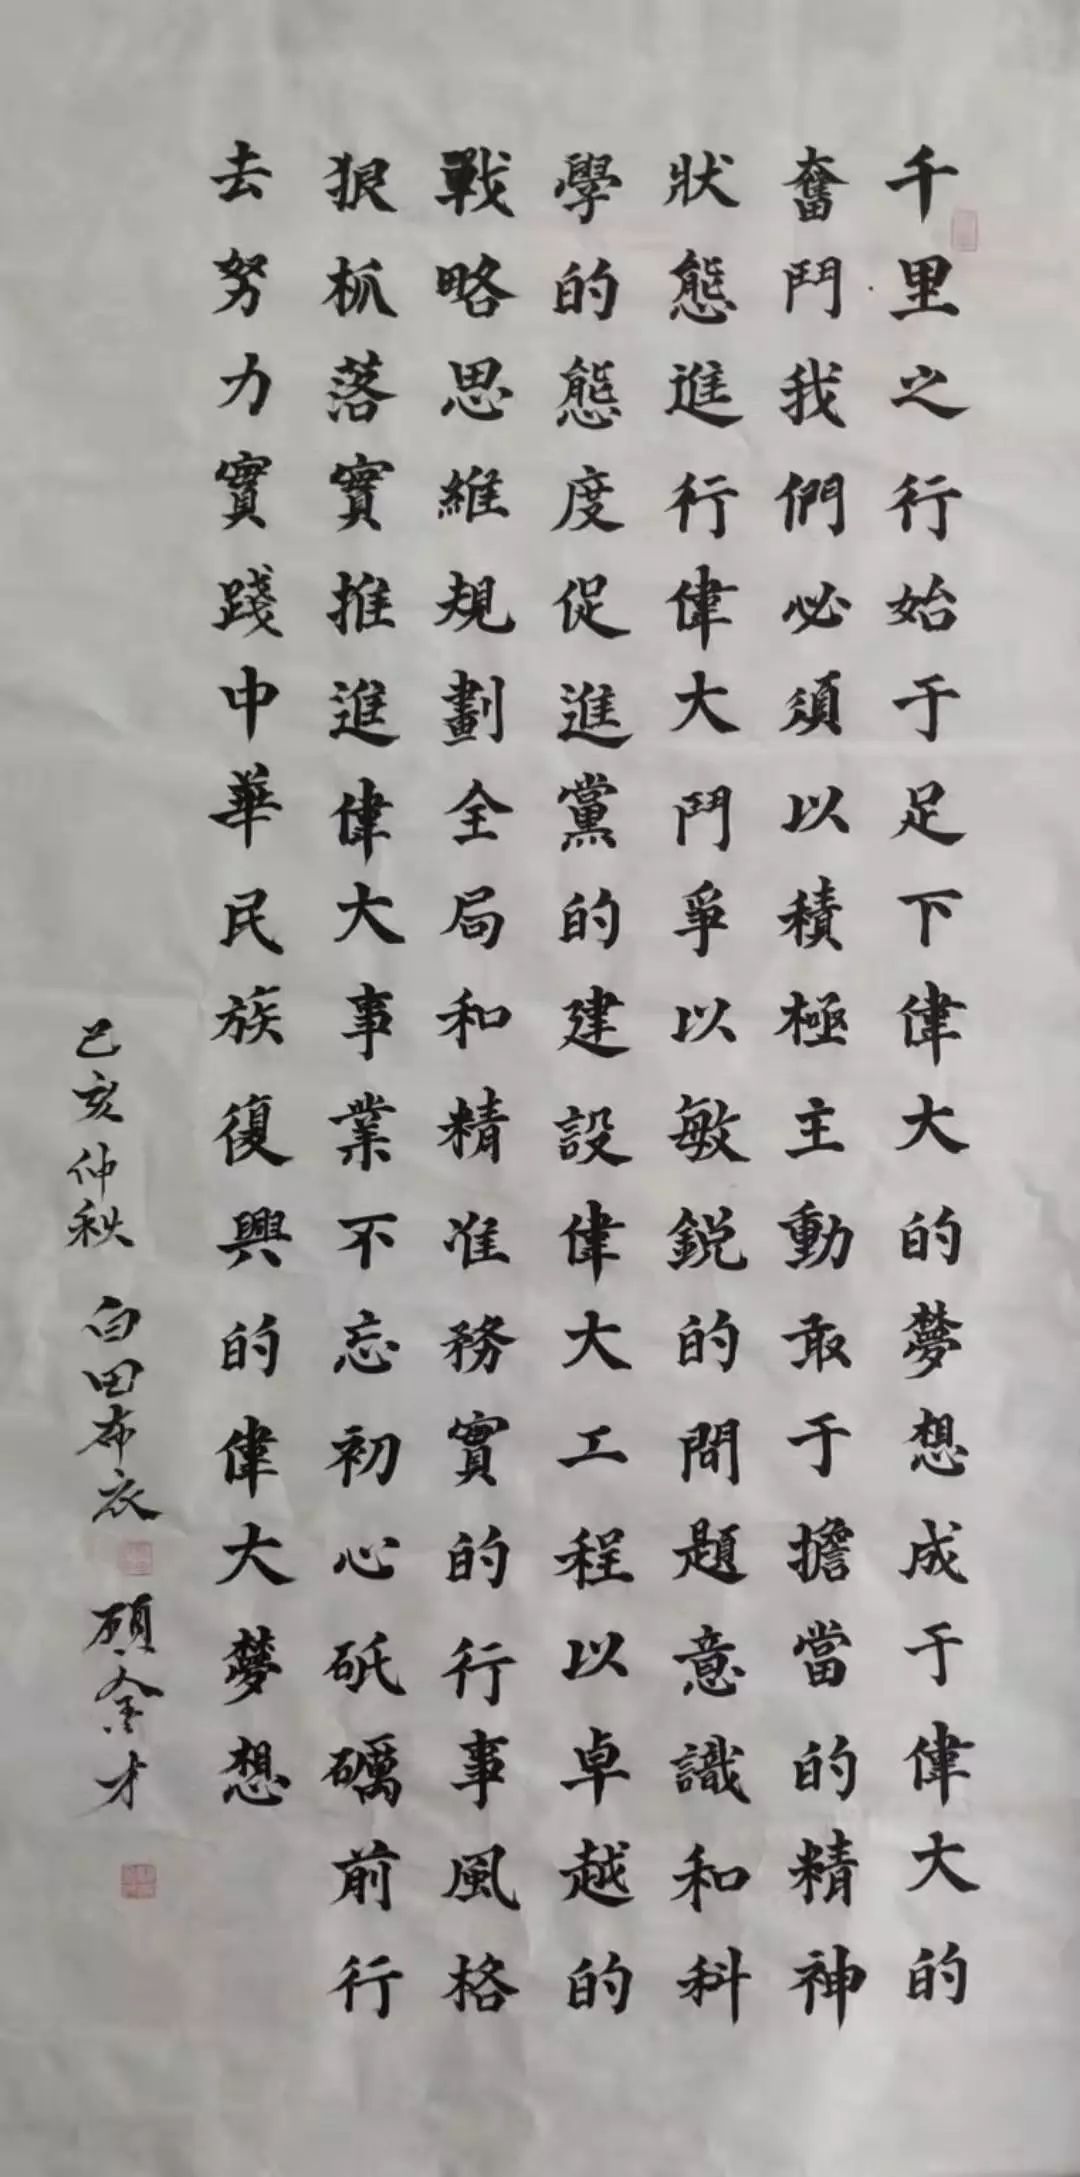 千里之行始于足下偉大的夢想成于偉大的
奮鬥我們必須以積極主動敢于擔當的精神
狀態進行偉大鬥爭以敏銳的問題意識和科
學的態度促進黨的建設偉大工程以卓越的
戰略思維規劃全局和精准務實的行事風格
狠抓落實推進偉大事業不忘初心砥礪前行
去努力實踐中華民族復興的偉大夢想
己亥仲秋 白田布衣 顾金才